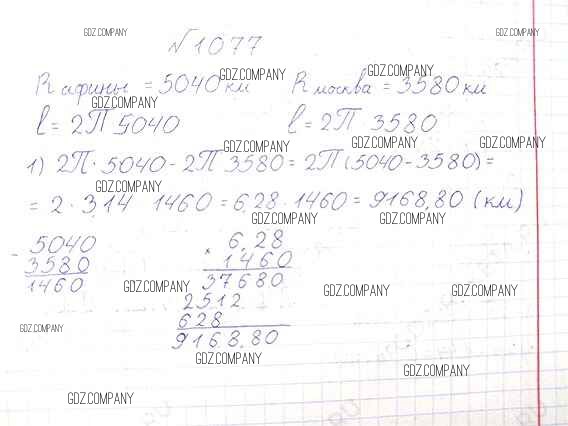 GDZ.COMPANY
№1077
GDZ.COMPANY GDZ.COMPANY
R афины = 5040 км R москва = 3580 км
GDZ.COMPANY
l = 2П 5040 l = 2П 3580
GDZ.COMPANY GDZ.COMPANY GDZ.COMPANY
1) 2П · 5040 - 2П 3580 = 2П (5040 - 3580) =
GDZ.COMPANY
= 2 · 3,14 1460 = 6,28 · 1460 = 9168,80 (км)
GDZ.COMPANY GDZ.COMPANY
- 5040
3580
1460
× 6,28
1460
37680
2512
628
9168,80
GDZ.COMPANY GDZ.COMPANY GDZ.COMPANY
GDZ.COMPANY
GDZ.COMPANY
GDZ.COMPANY
GDZ.COMPANY